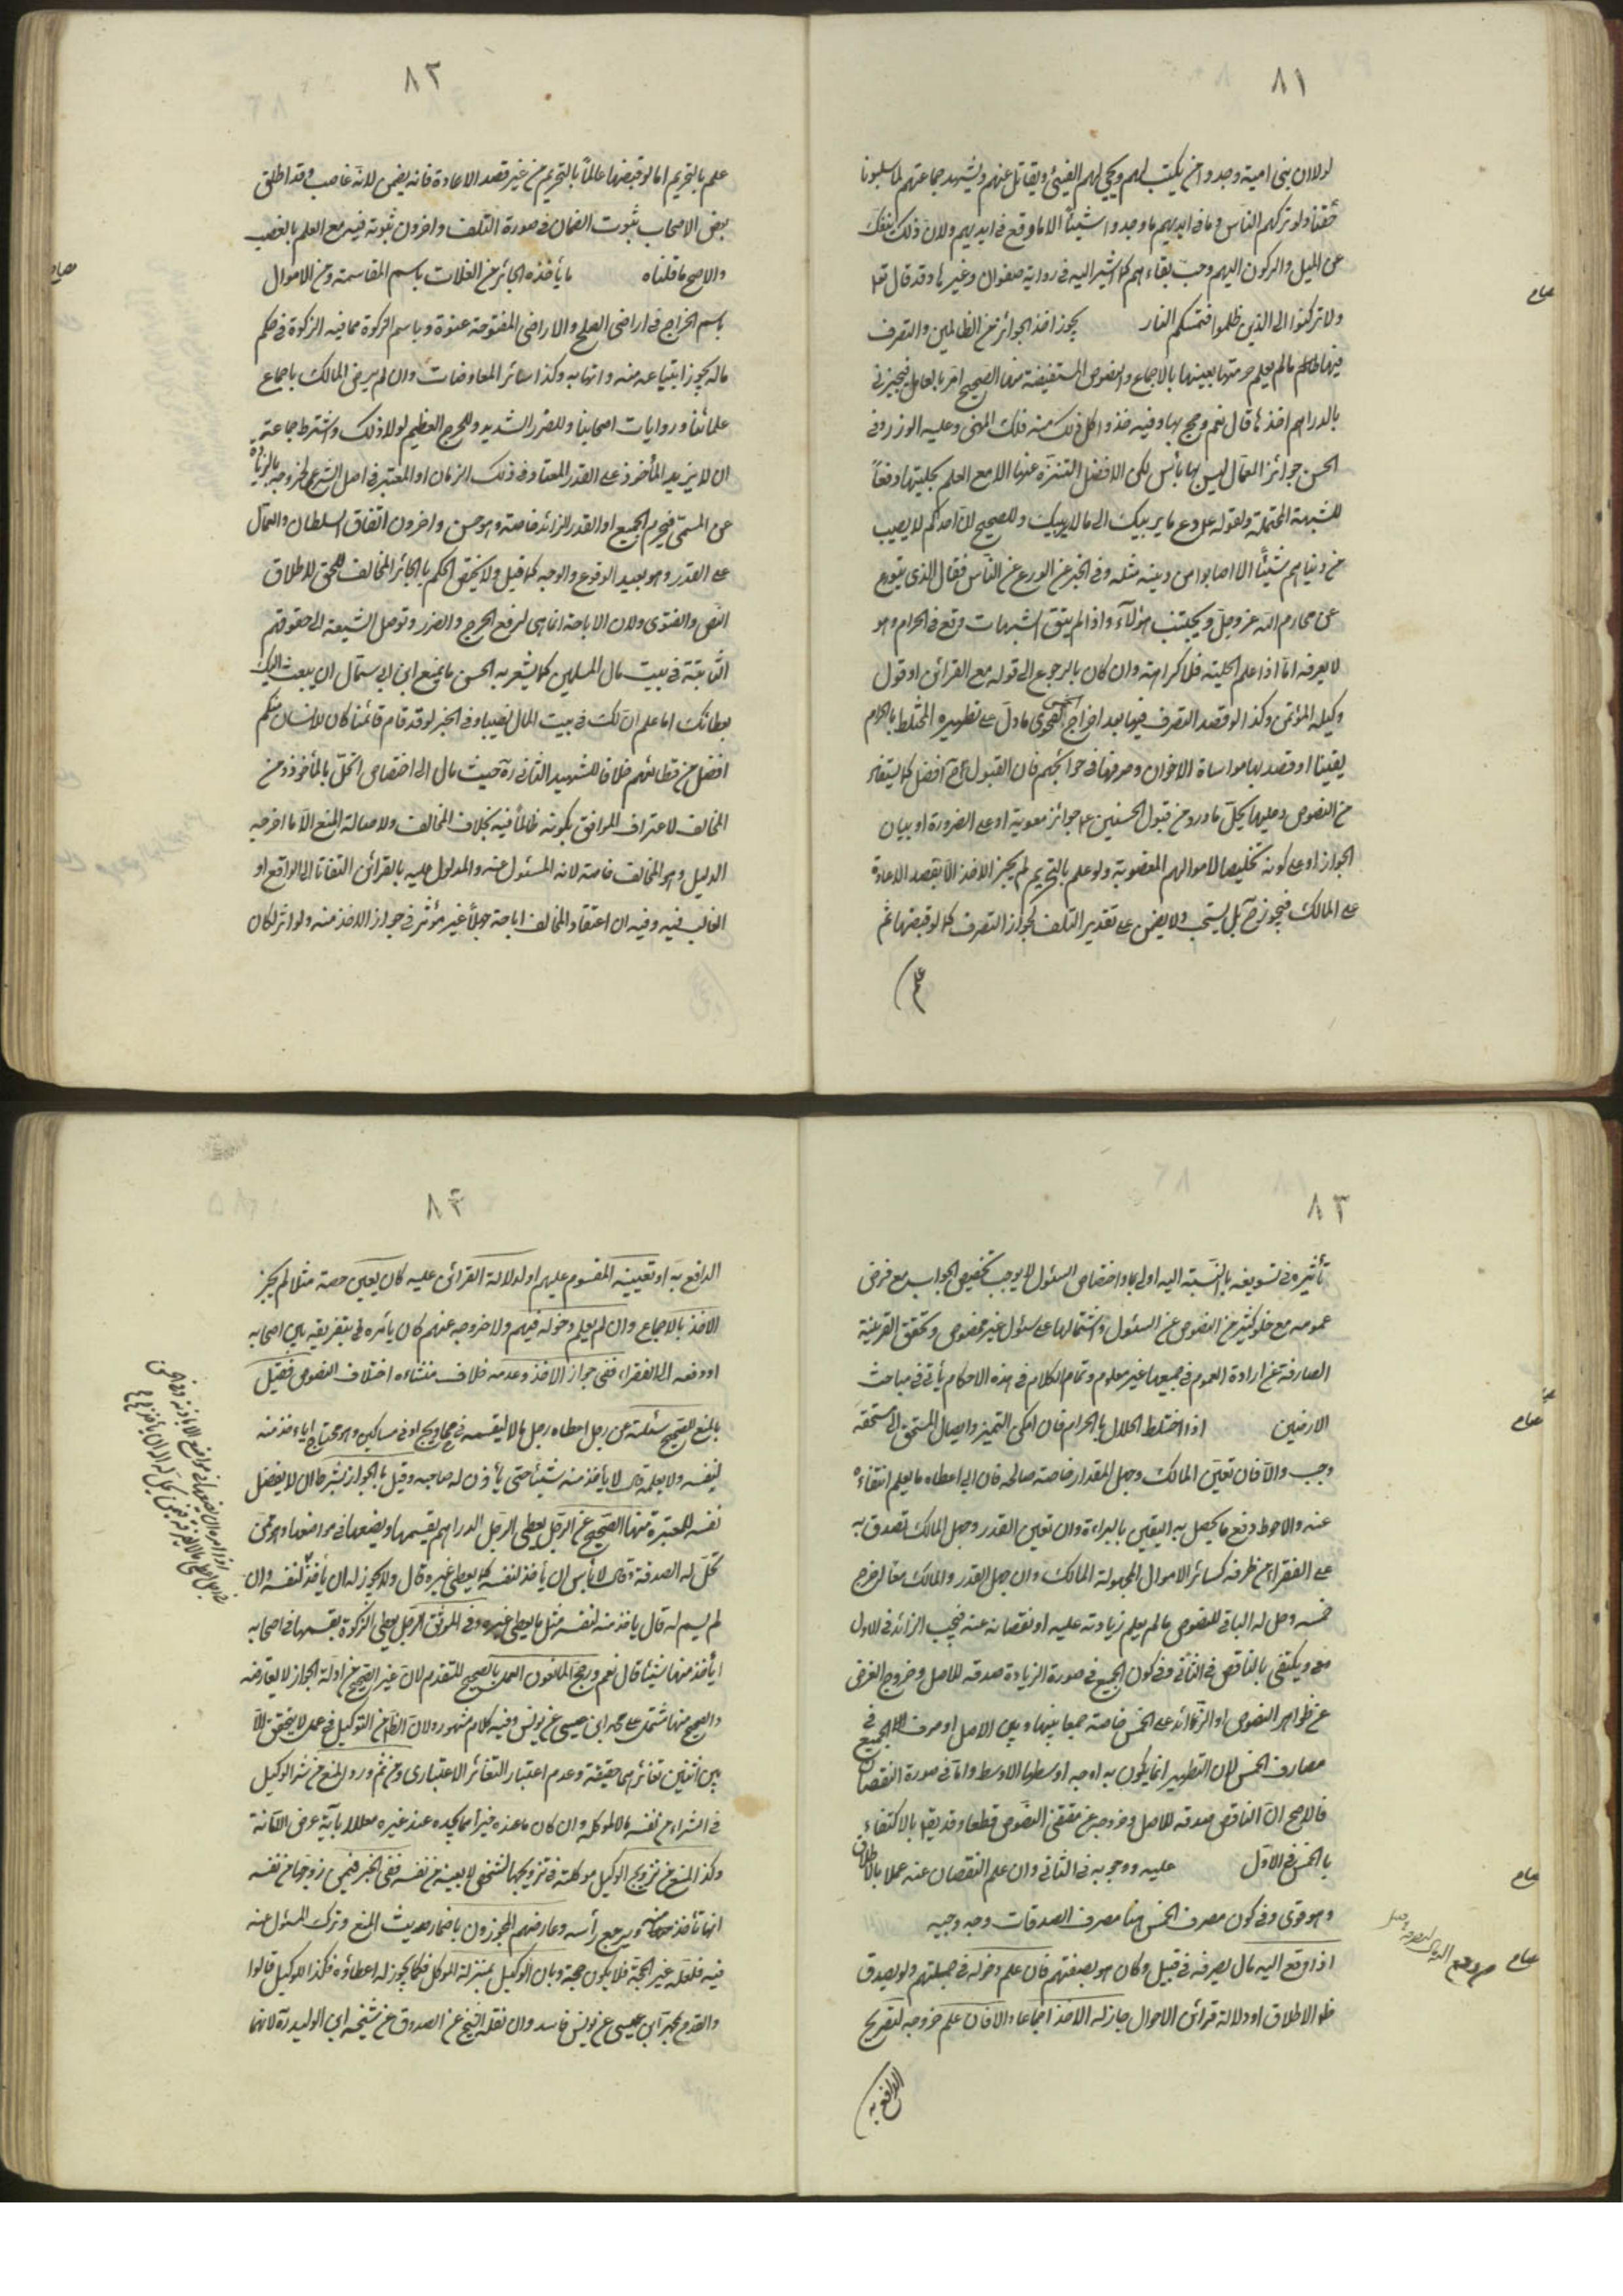 ٨١
لولا ان بنى امية وجدوا من يكتب لهم ويجبى لهم الفيئ ويقاتل عنهم ويشهد جماعتهم لما سلبونا
حقنا ولو تركهم الناس وما فى ايديهم ما وجدوا شيئا الا ما وقع فى ايديهم ولان ذلك لا ينفك
عن الميل والركون اليهم وحب بقاءهم كما اشير اليه فى رواية صفوان وغيرها وقد قال تع
ولا تركنوا الى الذين ظلموا فتمسكم النار يجوز اخذ الجوائز من الظالمين والتصرف
فيها ما لم يعلم حرمتها بعينها بالاجماع والنصوص المستفيضة منها الصحيح امر بالعامل فيجيزنى
بالدراهم اخذها قال نعم وحج بها وفيه خذ وكل فلك المهنى وعليه الوزر وفى
الحسن جوائز العمال ليس بها بأس لكن الافضل التنزه عنها الا مع العلم بحليتها دفعا
للشبهة المحتملة ولقوله ع دع ما يريبك الى ما لا يريبك وللصحيح ان احدكم لا يصيب
من دنياهم شيئا الا اصابوا من دينه مثله وفى الخبر عن الورع عن الناس فقال الذى يتورع
عن محارم الله عز وجل ويجتنب هؤلاء واذا لم يتق الشبهات وقع فى الحرام وهو
لا يعرفه اما اذا علم الحلية فلا كراهة وان كان بالرجوع الى قوله مع القرائن او قول
وكيله المؤتمن وكذا لو قصد التصرف فيها بعد اخراج الخمس لفحوى ما دل على تطهيره المختلط بالحرام
يقينا او قصد بها مواساة الاخوان وصرفها فى حوائجهم فان القبول ح افضل كما يستفاد
من النصوص وعليها يحمل ما ورد من قبول الحسنين ع جوائز معوية او على الضرورة او بيان
الجواز او على كونه تخليصا لاموالهم المغصوبة ولو علم بالتحريم لم يجز الاخذ الا بقصد الاعادة
على المالك فيجوز ح بل يستحب ولا يضمن على تقدير التلف لجواز التصرف كما لو قبضها ثم
علم
٨٢
علم بالتحريم اما لو قبضها عالما بالتحريم من غير قصد الاعادة فانه يضمن لانه غاصب وقد اطلق
بعض الاصحاب ثبوت الضمان فى صورة التلف واخرون ثبوته فيه مع العلم بالغصب
والاصح ما قلناه ما يأخذه الجائر من الغلات باسم المقاسمة ومن الاموال
باسم الخراج فى اراضى الصلح والاراضى المفتوحة عنوة وباسم الزكوة مما فيه الزكوة فى حكم
ماله يجوز ابتياعه منه واتهابه وكذا سائر المعاوضات وان لم يرض المالك باجماع
علمائنا وروايات اصحابنا وللضرر الشديد والحرج العظيم لولا ذلك واشترط جماعة
ان لا يزيد المأخوذ على القدر المعتاد فى ذلك الزمان او المعتبر فى اصل الشرع لخروجه بالزيادة
عن المسمى فيحرم الجميع او القدر الزائد خاصة وهو حسن واخرون اتفاق السلطان والعمال
على القدر وهو بعيد الوقوع والوجه كما قيل ولا يختص الحكم بالجائر المخالف للحق لاطلاق
النص والفتوى ولان الاباحة انما هى لرفع الحرج والضرر وتوصل الشيعة الى حقوقهم
الثابتة فى بيت مال المسلمين كما يشعر به الحسن ما يمنع ابن ابى سمال ان يبعث اليك
بعطائك اما علم ان لك فى بيت المال نصيبا وفى الخبر لو قد قام قائمنا كان للانسان منكم
افضل من قطائعهم خلافا للشهيد الثانى ره حيث مال الى اختصاص الحل بالمأخوذ من
المخالف لاعتراف الموافق بكونه ظالما فيه بخلاف المخالف ولاصالة المنع الا ما اخرجه
الدليل وهو المخالف خاصة لانه المسئول عنه والمدلول عليه بالقرائن التفاتا الى الواقع او
الغالب فيه وفيه ان اعتقاد المخالف اباحته جهلا غير مؤثر فى جواز الاخذ منه ولو اثر لكان
٨٣
تأثيره فى تسويغه بالنسبة اليه اولى واختصاص السئول لا يوجب تخصيص الجواب مع فرض
عمومه مع خلو كثير من النصوص عن السئول واشتمالها على سئول غير مخصوص وتحقق القرينة
الصارفة عن ارادة العموم فى جميعها غير معلوم وتمام الكلام فى هذه الاحكام يأتى فى مباحث
الارضين اذا اختلط الحلال بالحرام فان امكن التميز وايصال المستحق الى مستحقه
وجب والا فان تعين المالك وجهل المقدار خاصة صالحه فان ابى اعطاه ما يعلم انتفاءه
عنه والاحوط دفع ما يحصل به اليقين بالبراءة وان تعين القدر وجهل المالك تصدق به
على الفقراء من طرفه كسائر الاموال المجهولة المالك وان جهل القدر والمالك معا اخرج
خمسه وحل له الباقى للنصوص ما لم يعلم زيادته عليه او نقصانه عنه فيجب الزائد فى الاول
مع ويكتفى بالناقص فى الثانى وفى كون الجميع فى صورة الزيادة صدقة للاصل وخروج الفرض
عن ظواهر النصوص او الزائد على الخمس خاصة جمعا بينها وبين الاصل او صرف الجميع فى
مصارف الخمس لان التطهير انما يكون به اوجه اوسطها الاوسط واما فى صورة النقصان
فالاصح ان الناقص صدقة للاصل وخروجه عن مقتضى النصوص قطعا وقد يقال بالاكتفاء
بالخمس فى الاول عليه ووجوبه فى الثانى وان علم النقصان عنه عملا بالاطلاق
وهو قوى وفى كون مصرف الخمس هنا مصرف الصدقات وجه وجيه
اذا وقع اليه مال يصرفه فى قبيل وكان هو بصفتهم فان علم دخوله فى جملتهم ولو بصدق
الاطلاق او دلالة قرائن الاحوال جاز له الاخذ اجماعا والا فان علم خروجه لتصريح
الدافع به
٨٤
الدافع به او تعيينه المقسوم عليهم او لدلالة القرائن عليه كان يعين حصة مثلا لم يجز
الاخذ بالاجماع وان لم يعلم دخوله فيهم ولا خروجه عنهم كان يأمره بتفريقه بين اصحابه
او دفعه الى الفقراء ففى جواز الاخذ وعدمه خلاف منشاءه اختلاف النصوص فقيل
بالمنع للصحيح سئلته عن رجل اعطاه رجل مالا ليقسمه فى محاويج او فى مساكين وهو محتاج ايأخذ منه
لنفسه ولا يعلمه قال لا يأخذ منه شيئا حتى يأذن له صاحبه وقيل بالجواز بشرط ان لا يفضل
نفسه للمعتبرة منها الصحيح عن الرجل يعطى الرجل الدراهم يقسمها ويضعها فى مواضعها وهو ممن
تحل له الصدقة قال لا بأس ان يأخذ لنفسه كما يعطى غيره قال ولا يجوز له ان يأخذ لنفسه وان
لم يسم له قال يأخذ منه لنفسه مثل ما يعطى غيره وفى الموثق الرجل يعطى الزكوة يقسمها فى اصحابه
ايأخذ منها شيئا قال نعم ورجح المانعون العمل بالصحيح المتقدم لان غير الصحيح من ادلة الجواز لا يعارضه
والصحيح منها مشتمل على محمد ابن عيسى عن يونس وفيه كلام مشهور ولان الظاهر من التوكيل فى عمل لا يتحقق الا
بين اثنين تغائرهما حقيقة وعدم اعتبار التغائر الاعتبارى ومن ثم ورد المنع من شراء الوكيل
فى الشراء من نفسه مالا لموكله وان كان ما عنده خيرا مما يجده عند غيره معللا بآية عرض الامانة
وكذا المنع من تزويج الوكيل موكلته فى تزويجها لشخص لا بعينه من نفسه ففى الخبر فيمن زوجها من نفسه
انها تأخذ منه ويرجع رأسه وعارضهم المجوزون باضمار حديث المنع وترك المسئول عنه
فيه فلعله غير الحجة فلا يكون حجة وبان الوكيل بمنزلة الموكل فكما يجوز له اعطاؤه فكذا للوكيل قالوا
والقدح بمحمد ابن عيسى عن يونس فاسد وان نقله الشيخ عن الصدوق عن شيخه ابن الوليد ره لانهما